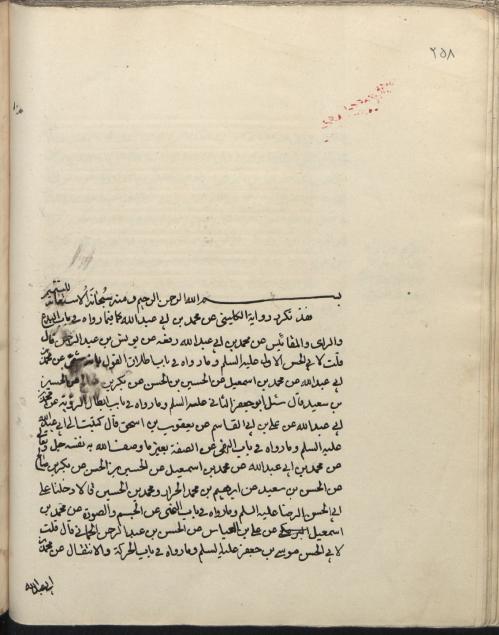 ٢٥٨
بسم الله الرحمن الرحيم ومنه سبحانه الاستعانة للتتميم
قد تكرر رواية الكليني عن محمد بن ابي عبد الله كما فيما رواه في باب البدع
والراى والمقائيس عن محمد بن ابي عبد الله رفعه عن يونس بن عبد الرحمن قال
قلت لابي الحسن الاول عليه السلم وما رواه في باب اطلاق القول بانه شئ عن محمد بن
ابي عبد الله عن محمد بن اسمعيل عن الحسين بن الحسن عن بكر بن صالح عن الحسين
بن سعيد قال سئل ابو جعفر الثاني عليه السلم وما رواه في باب ابطال الرؤية عن محمد بن
ابي عبد الله عن علي بن ابي القاسم عن يعقوب بن اسحق قال كتبت الى ابي محمد
عليه السلم وما رواه في باب النهى عن الصفة بغير ما وصف الله به نفسه جل وتعالى
عن محمد بن ابي عبد الله عن محمد بن اسمعيل عن الحسين بن الحسن عن بكر بن صالح
عن الحسن بن سعيد عن ابرهيم بن محمد الخزاز ومحمد بن الحسين قالا دخلنا على
ابي الحسن الرضا عليه السلم وما رواه في باب النهى عن الجسم والصورة عن محمد بن
اسمعيل عن علي بن العباس عن الحسن بن عبد الرحمن الحماني قال قلت
لابي الحسن موسى بن جعفر عليه السلم وما رواه في باب الحركة والانتقال عن محمد بن
ابي عبد الله